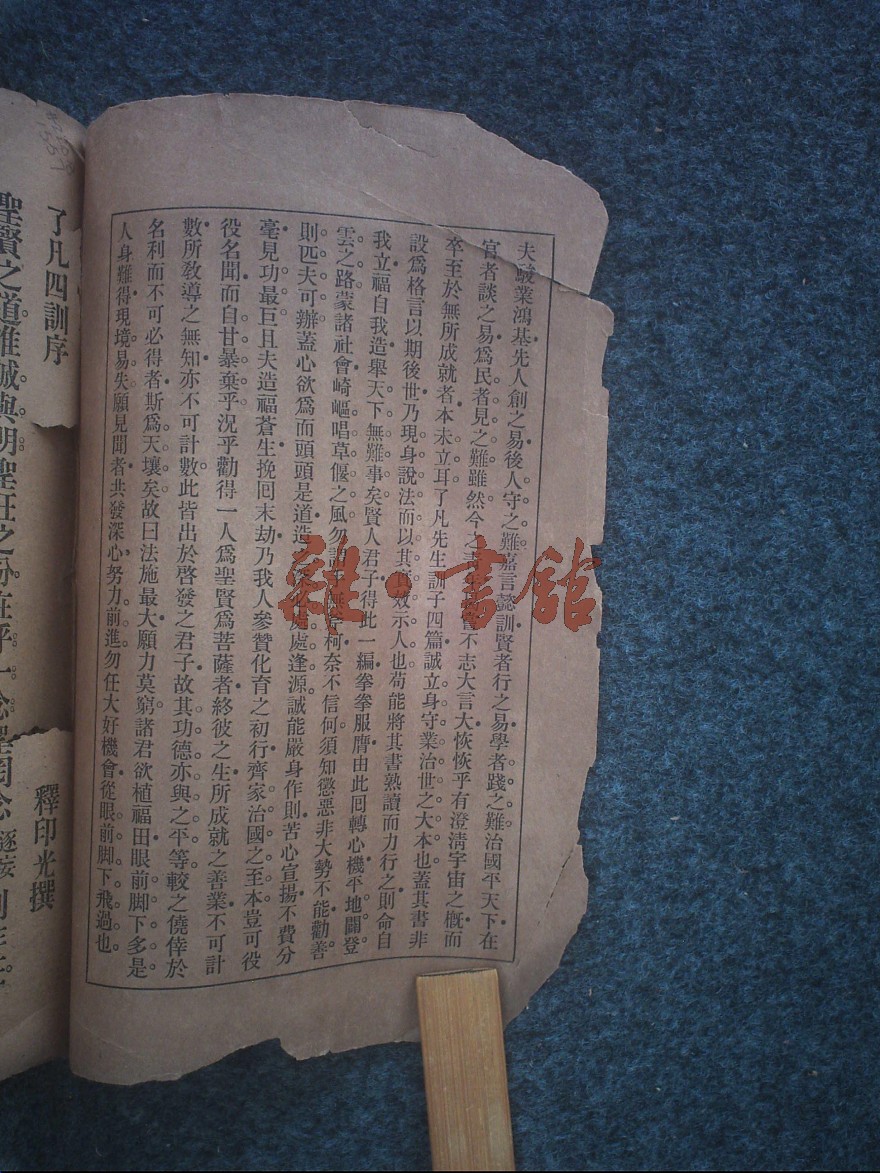 夫峻業鴻基先人創之易後人守之難嘉言懿訓賢者行之易學者踐之難治國平天下在
官者談之易爲民者見之難雖然今之不志大言大恢恢乎有澄清宇宙之慨而
卒至於無所成就者本未立耳了凡先生訓子四篇誠立身守業治世之大本也蓋其書非
設爲格言以期後世乃現身說法而以其效示人也苟能將其書熟讀而力行之則命自
我立福自我造舉天下無難事矣賢人君子得此一編拳拳服膺由此囘轉心機平地闢登
雲之路蒙諸社會崎嶇唱草偃之風勿柯奈不信何須知懲惡非大勢不能勸善
則匹夫可辦蓋心欲爲而頭頭是道造處處逢源誠能嚴身作則苦心宣揚不費分
毫見功最巨且夫造福蒼生挽囘末劫乃我人參贊化育之初行齊家治國之至本豈可役
役名聞而自甘暴棄乎況乎勸得一人爲聖賢爲菩薩者終彼之生所成就之善業不可計
數所敎導之無知亦不可計數此皆出於啓發之君子故其功德亦與之平等較之僥倖於
名利而不可必得者斯爲天壤矣故曰法施最大願力莫窮諸君欲植福田眼前脚下多是
人身難得現境易失願見聞者共發深心努力前進勿任大好機會從眼前脚下飛過也
了凡四訓序
釋印光撰
聖賢之道唯誠與明聖狂之分在乎一念聖罔念
雜·書館